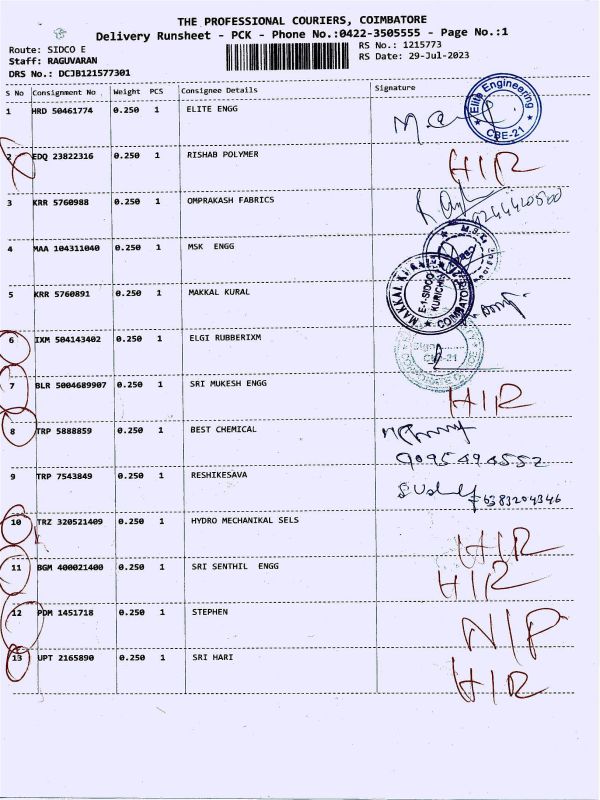 THE PROFESSIONAL COURIERS, COIMBATORE
Delivery Runsheet - PCK - Phone No.:0422-3505555 - Page No.:1
Route: SIDCO E
RS No.: 1215773
Staff: RAGUVARAN
RS Date: 29-Jul-2023
DRS No.: DCJB121577301
S No Consignment No Weight PCS Consignee Details Signature
1 HRD 50461774 0.250 1 ELITE ENGG
Elite Engineering CBE-21
2 EDQ 23822316 0.250 1 RISHAB POLYMER HIR
3 KRR 5760988 0.250 1 OMPRAKASH FABRICS
4 MAA 104311040 0.250 1 MSK ENGG
5 KRR 5760891 0.250 1 MAKKAL KURAL
MAKKAL KURAL E-1-SIDCO KURICHI COIMBATORE
6 IXM 504143402 0.250 1 ELGI RUBBERIXM
CBE-21
7 BLR 5004689907 0.250 1 SRI MUKESH ENGG HIR
8 TRP 5888859 0.250 1 BEST CHEMICAL
9095494552
9 TRP 7543849 0.250 1 RESHIKESAVA
6383204346
10 TRZ 320521409 0.250 1 HYDRO MECHANIKAL SELS HIR
11 BGM 400021400 0.250 1 SRI SENTHIL ENGG HIR
12 PDM 1451718 0.250 1 STEPHEN N/P
13 UPT 2165890 0.250 1 SRI HARI HIR